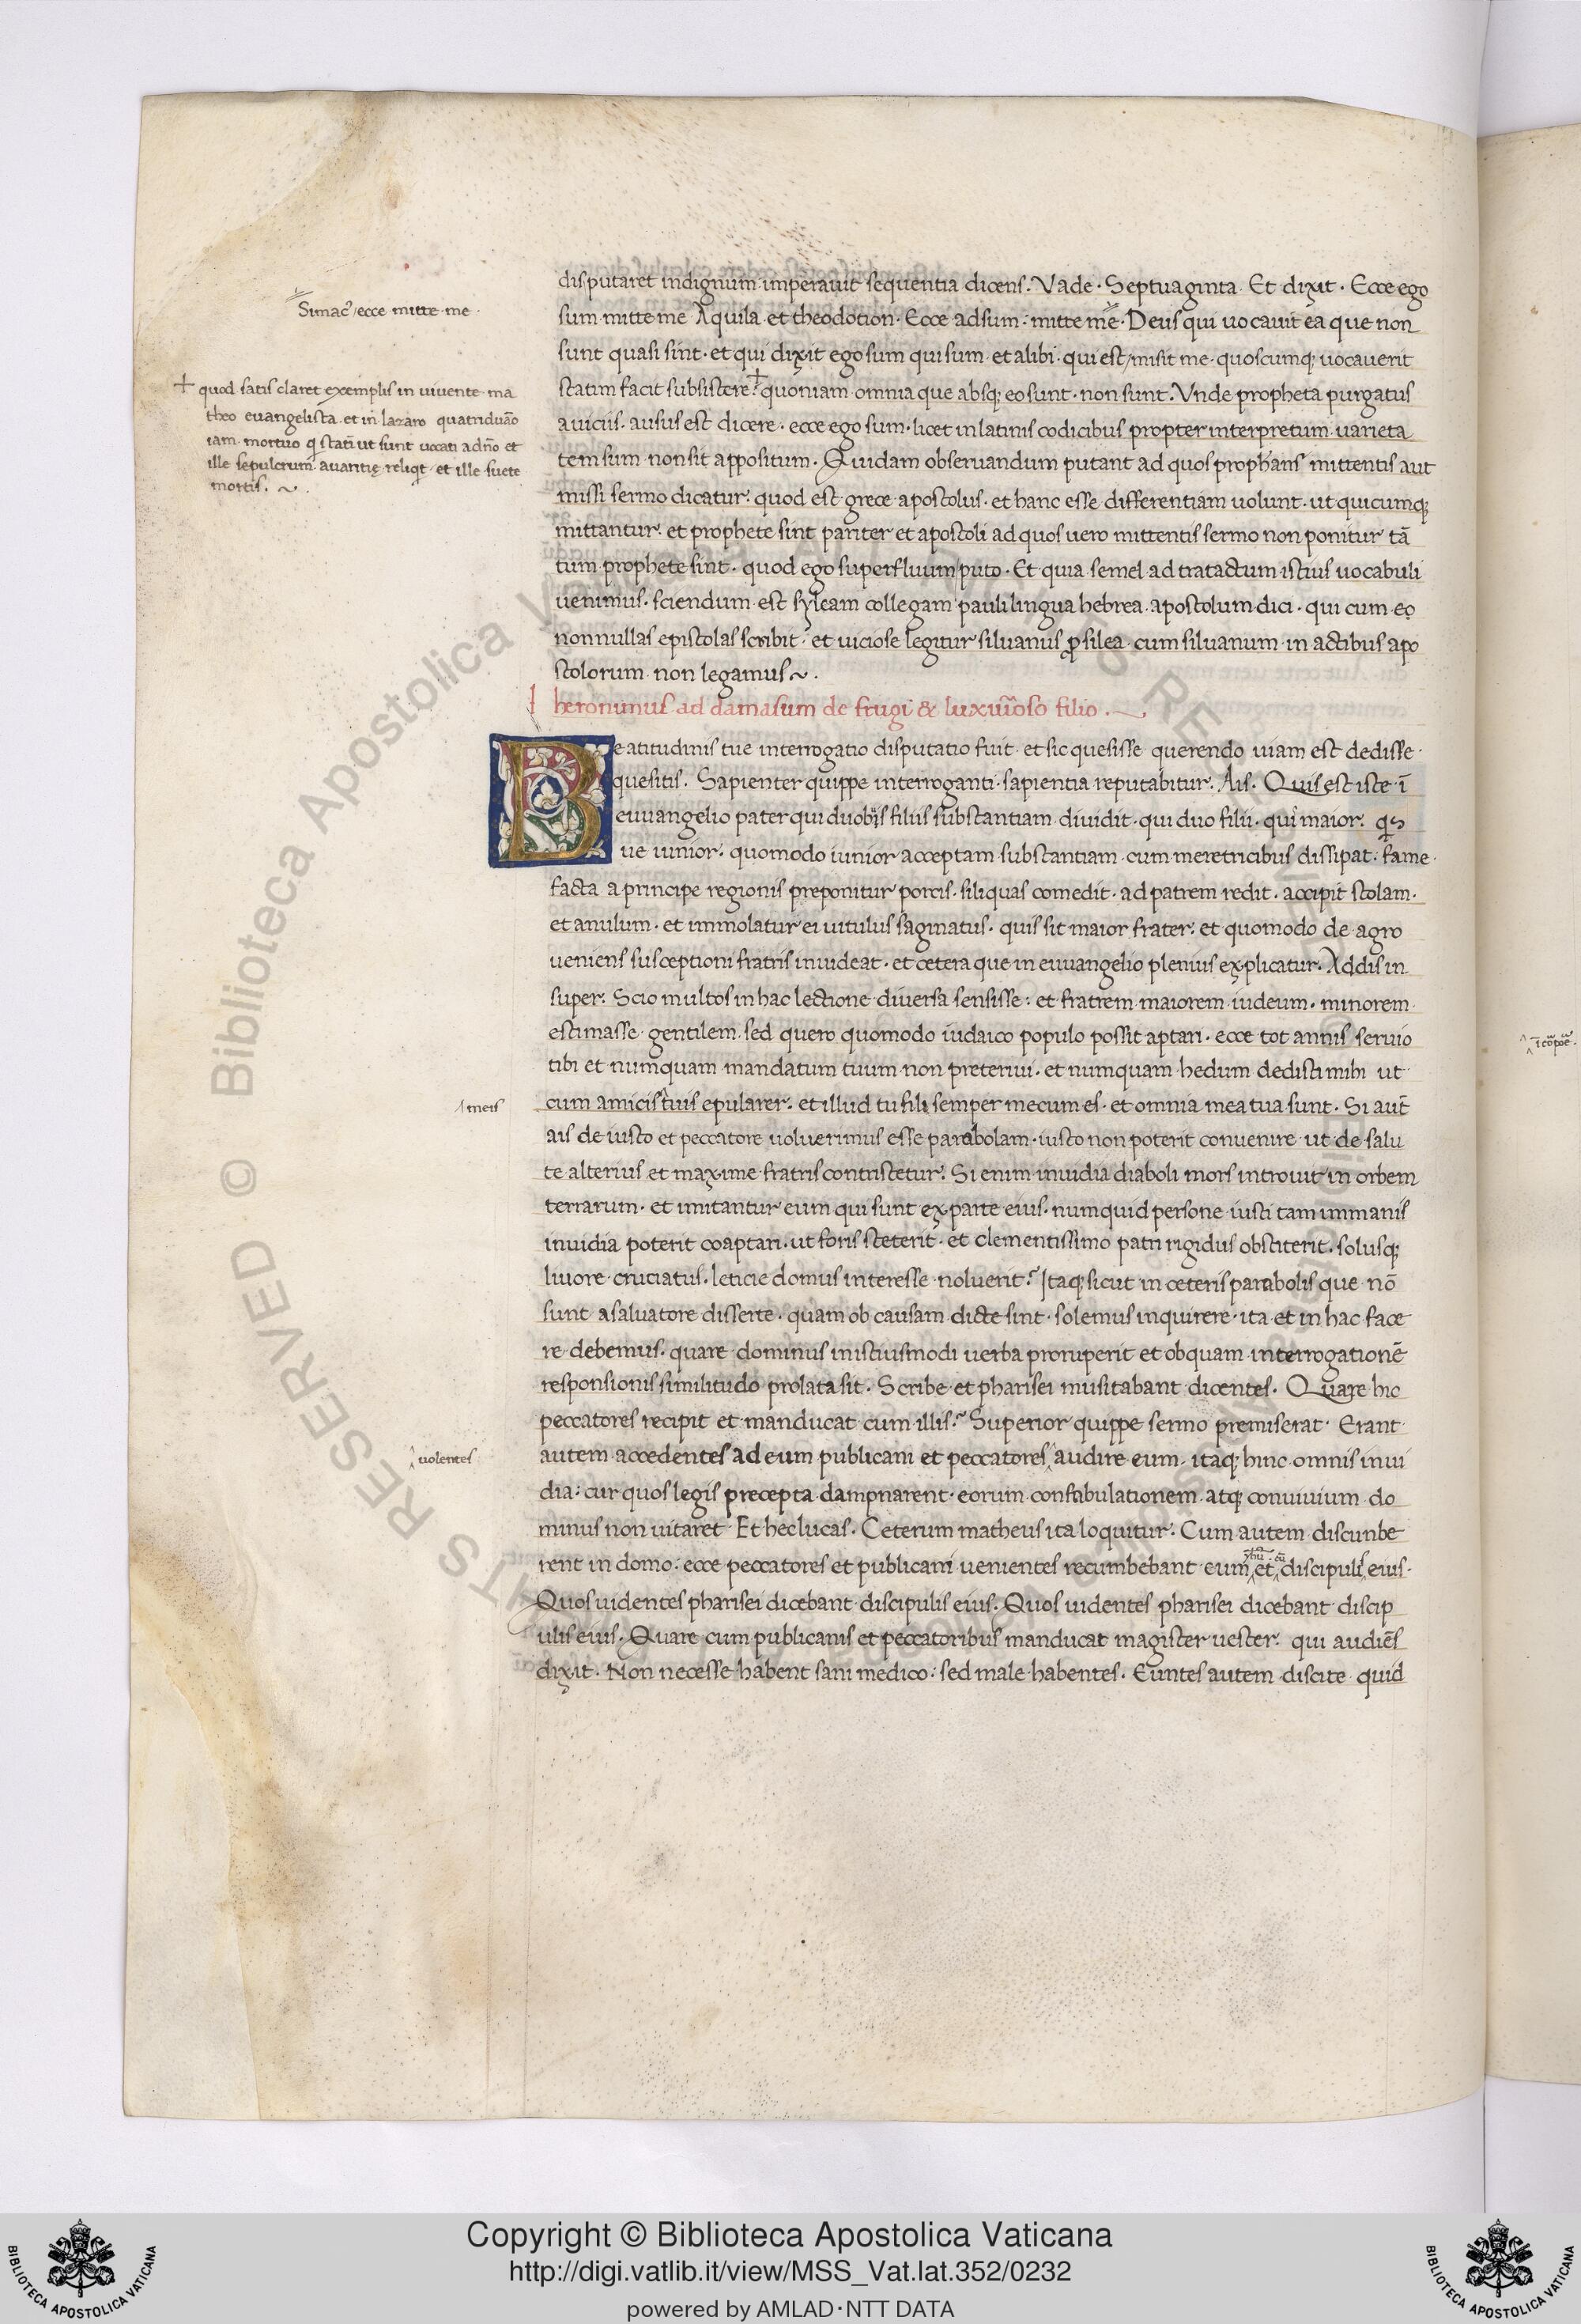 disputaret indignum imperauit sequentia dicens. Vade. Septuaginta. Et dixit. Ecce ego
sum mitte me Aquila et theodotion. Ecce adsum: mitte me. Deus qui uocauit ea que non
sunt quasi sint. et qui dixit ego sum qui sum. et alibi. qui est / misit me. quoscumq; uocauerit
statim facit subsistere. quoniam omnia que absq; eo sunt. non sunt. Vnde propheta purgatus
a uiciis. ausus est dicere. ecce ego sum. licet in latinis codicibus propter interpretum uarieta
tem sum non sit appositum. Quidam obseruandum putant ad quos mittentis aut
missi sermo dicatur. quod est grece apostolus. et hanc esse differentiam uolunt. ut quicumq;
mittantur. et prophete sint pariter et apostoli ad quos uero mittentis sermo non ponitur tā
tum prophete sint. quod ego superfluum / puto. Et quia semel ad tratactum istius uocabuli
uenimus. sciendum est syleam collegam pauli lingua hebrea apostolum dici. qui cum eo
nonnullas epistolas scribit. et uiciose legitur siluanus ꝓ silea. cum siluanum in actibus apo
stolorum non legamus ~.
Iheronimus ad damasum de frugi & luxurioso filio.
Beatitudinis tue interrogatio disputatio fuit. et sic quesisse querendo uiam est dedisse
quesitis. Sapienter quippe interroganti sapientia reputabitur. Ais. Quis est iste ī
euuangelio pater qui duobus filiis substantiam diuidit. qui duo filii. qui maior.
ue iunior. quomodo iunior acceptam substantiam cum meretricibus dissipat. fame
facta a principe regionis preponitur porcis. siliquas comedit. ad patrem redit. accipit stolam.
et anulum. et immolatur ei uitulus saginatus. quis sit maior frater. et quomodo de agro
ueniens susceptioni fratris inuideat. et cetera que in euuangelio plenius explicatur. Addis in
super. Scio multos in hac lectione diuersa sensisse: et fratrem maiorem iudeum. minorem
estimasse gentilem. sed quero quomodo iudaico populo possit aptari. ecce tot annis seruio
tibi et numquam mandatum tuum non preteriui. et numquam hedum dedisti mihi ut
cum amicis tuis epularer. et illud tu fili semper mecum es. et omnia mea tua sunt. Si aut̄
ais de iusto et peccatore uoluerimus esse parabolam. iusto non poterit conuenire ut de salu
te alterius et maxime fratris contristetur. Si enim inuidia diaboli mors introiuit in orbem
terrarum. et imitantur eum qui sunt ex parte eius. numquid persone iusti tam immanis
inuidia poterit coaptari. ut foris steterit. et clementissimo patri rigidus obstiterit. solusq;
liuore cruciatus. leticie domus interesse noluerit? Itaq; sicut in ceteris parabolis que nō
sunt a saluatore disserte. quam ob causam dicte sint. solemus inquirere. ita et in hac face
re debemus. quare dominus in istiusmodi uerba proruperit et ob quam interrogationē
responsionis similitudo prolata sit. Scribe et pharisei musitabant dicentes. Quare hic
peccatores recipit et manducat cum illis? Superior quippe sermo premiserat. Erant
autem accedentes ad eum publicani et peccatores audire eum. itaq; hinc omnis inui
dia: cur quos legis precepta dampnarent. eorum confabulationem atq; conuiuium do
minus non uitaret Et hec lucas. Ceterum matheus ita loquitur. Cum autem discunbe
rent in domo: ecce peccatores et publicani uenientes recumbebant cum et discipulis eius.
Quos uidentes pharisei dicebant discipulis eius. Quos uidentes pharisei dicebant discip
ulis eius. Quare cum publicanis et peccatoribus manducat magister uester. qui audiēs
dixit. Non necesse habent sani medico: sed male habentes. Euntes autem discite quid
Simac' / ecce mitte me.
+ quod satis claret exemplis in uiuente ma
theo euangelista et in lazaro quatriduāo
iam mortuo statī ut sunt uocati a dño et
ille sepulcrum auaritię reliqt et ille suete
mortis. ~.
meis
uolentes
Copyright © Biblioteca Apostolica Vaticana
http://digi.vatlib.it/view/MSS_Vat.lat.352/0232
powered by AMLAD·NTT DATA
BIBLIOTECA APOSTOLICA VATICANA
BIBLIOTECA APOSTOLICA VATICANA